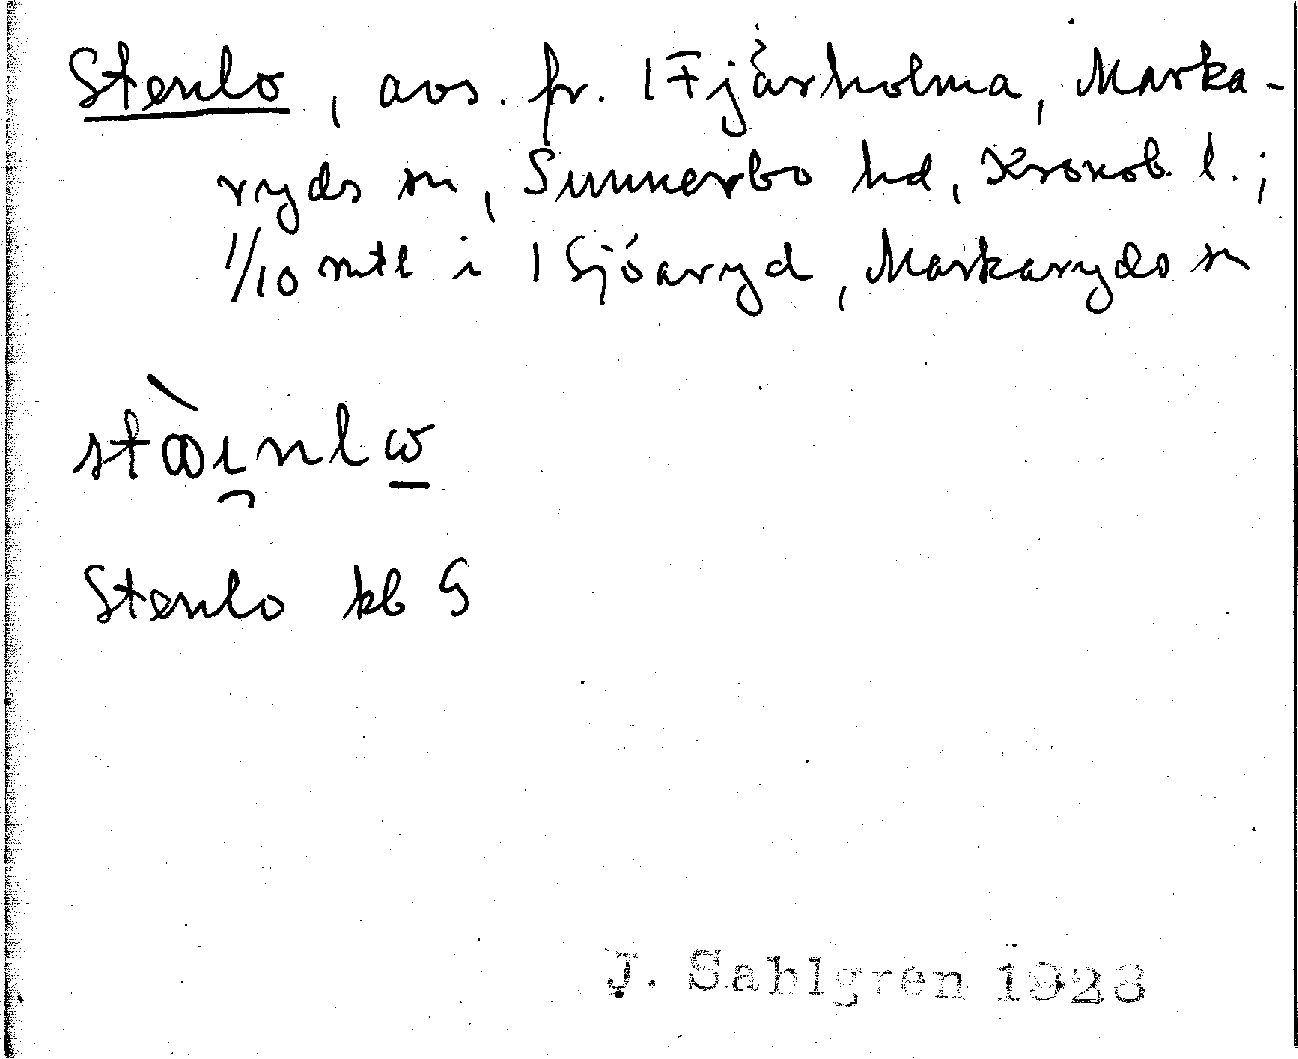 Stenlo, avs. fr. 1 Fjärholma, Marka-
ryds sn, Sunnerbo hd, Kronob. l.;
1/10 mtl i 1 Sjöaryd, Markaryds sn
Stenlo kb G
J. Sahlgren 1928